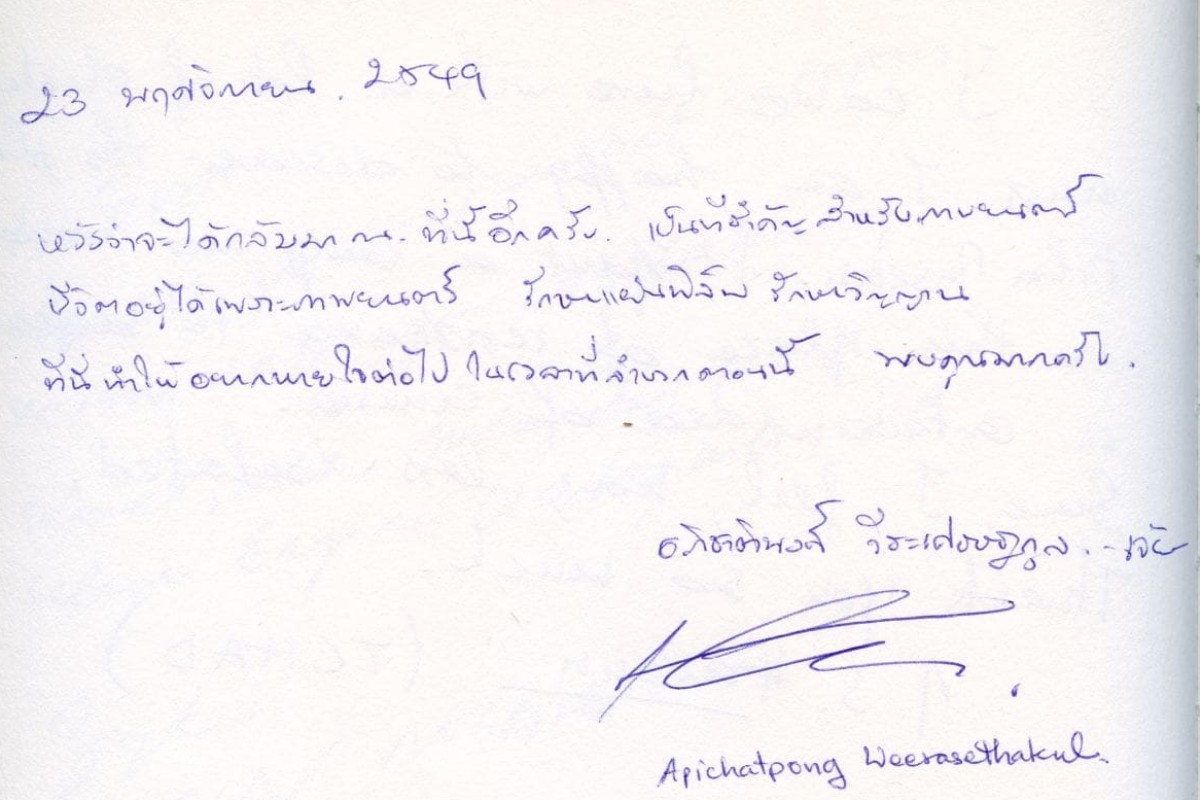 23 พฤศจิกายน. 2549
หวังว่าจะได้กลับมา ณ. ที่นี้อีกครับ. เป็นที่สำคัญสำหรับภาพยนตร์
ชีวิตอยู่ได้เพราะภาพยนตร์ รักษาแผ่นฟิล์ม รักษาวิญญาณ
ที่นี่ทำให้อยากหายใจต่อไป ในเวลาที่ลำบากตอนนี้ ขอบคุณมากครับ.
อภิชาติพงศ์ วีระเศรษฐกุล. - เจ้ย
Apichatpong Weerasethakul.